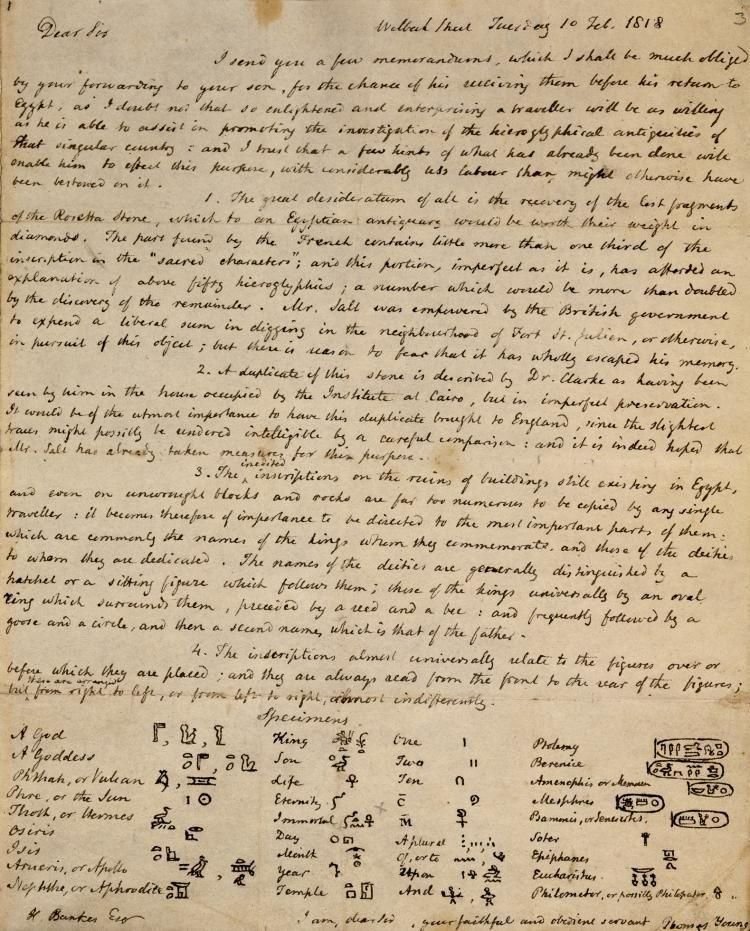 3
Dear Sir
Welbeck Street Tuesday 10 Feb. 1818
I send you a few memorandums, which I shall be much obliged
by your forwarding to your son, for the chance of his receiving them before his return to
Egypt, as I doubt not that so enlightened and enterprising a traveller will be as willing
as he is able to assist in promoting the investigation of the hieroglyphical antiquities of
that singular country: and I trust that a few hints of what has already been done will
enable him to effect this purpose, with considerably less labour than might otherwise have
been bestowed on it.
1. The great desideratum of all is the recovery of the lost fragments
of the Rosetta Stone, which to an Egyptian antiquary would be worth their weight in
diamonds. The part found by the French contains little more than one third of the
inscription in the "sacred characters"; and this portion, imperfect as it is, has afforded an
explanation of above fifty hieroglyphics; a number which would be more than doubled
by the discovery of the remainder. Mr. Salt was empowered by the British government
to expend a liberal sum in digging in the neighbourhood of Fort St. Julien, or otherwise,
in pursuit of this object; but there is reason to fear that it has wholly escaped his memory.
2. A duplicate of this stone is described by Dr. Clarke as having been
seen by him in the house occupied by the Institute at Cairo, but in imperfect preservation.
It would be of the utmost importance to have this duplicate brought to England, since the slightest
traces might possibly be rendered intelligible by a careful comparison: and it is indeed hoped that
Mr. Salt has already taken measures for this purpose.
3. The inedited inscriptions on the ruins of buildings still existing in Egypt,
and even on unwrought blocks and rocks are far too numerous to be copied by any single
traveller: it becomes therefore of importance to be directed to the most important parts of them:
which are commonly the names of the kings whom they commemorate, and those of the deities
to whom they are dedicated. The names of the deities are generally distinguished by a
hatchet or a sitting figure which follows them; those of the kings universally by an oval
ring which surrounds them, preceded by a reed and a bee: and frequently followed by a
goose and a circle, and then a second name, which is that of the father.
4. The inscriptions almost universally relate to the figures over or
before which they are placed; and they are always read from the front to the rear of the figures;
but these are arranged from right to left, or from left to right, almost indifferently.
Specimens
A God
A Goddess
Phthah, or Vulcan
Phre, or the Sun
Thoth, or Hermes
Osiris
Isis
Arueris, or Apollo
Nephthe, or Aphrodite
King
Son
Life
Eternity
Immortal
Day
Month
Year
Temple
One
Two
Ten
C
M
A plural
Of, or to
Upon
And
Ptolemy
Berenice
Amenophis or Memnon
Mesphres
Soter
Epiphanes
Eucharistus
Philometor, or possibly Philopator
H Bankes Esq
I am, dear Sir, your faithful and obedient servant Thomas Young